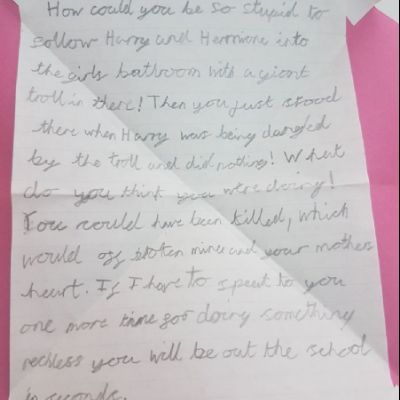 How could you be so stupid to
sollow Harry and Hermione into
the girls bathroom with a giant
troll in there! Then you just stood
there when Harry was being dangled
by the troll and did nothing! What
do you think you were doing!
You could have been killed, which
would of broken mine and your mothers
heart. If I have to speet to you
one more time for doing something
reckless you will be out the school
in seconds.